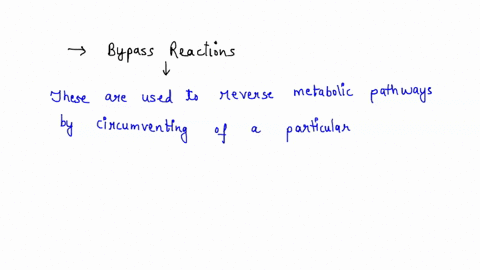 → Bypass Reactions
↓
These are used to reverse metabolic pathways
by circumventing of a particular